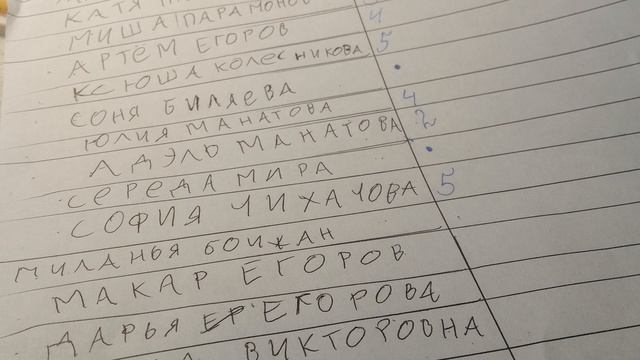 КАТЯ
МИША ПАРАМОНОВ
АРТЁМ ЕГОРОВ 4
КСЮША КОЛЕСНИКОВА 5
СОНЯ БИЛАЕВА
ЮЛИЯ МАНАТОВА 4
АДЭЛЬ МАНАТОВА 2
СЕРЕДА МИРА
СОФИЯ ЧИХАЧОВА 5
МИЛАНЬЯ БОИЖАН
МАКАР ЕГОРОВ
ДАРЬЯ ЕГОРОВА
ВИКТОРОВНА